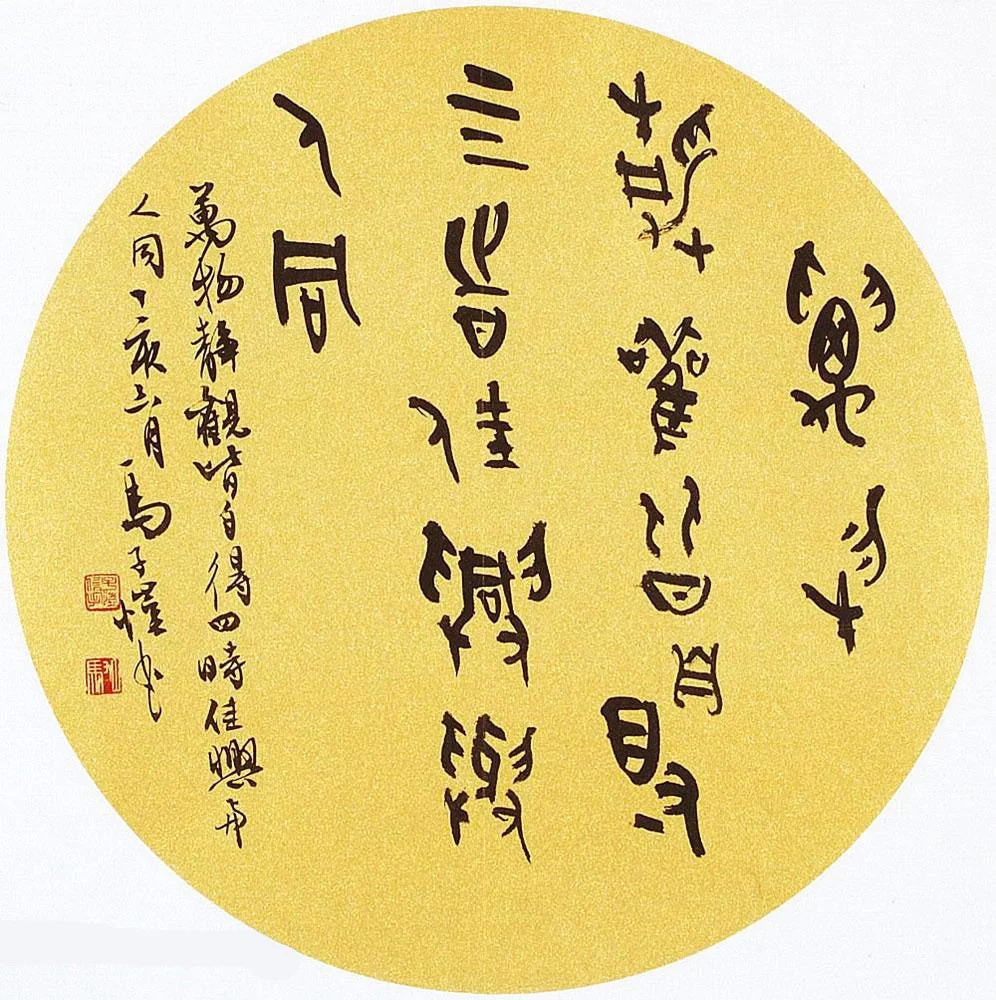 萬物
靜觀皆自得
四時佳興與
人同
萬物靜觀皆自得四時佳興與
人同丁亥六月馬子愷書